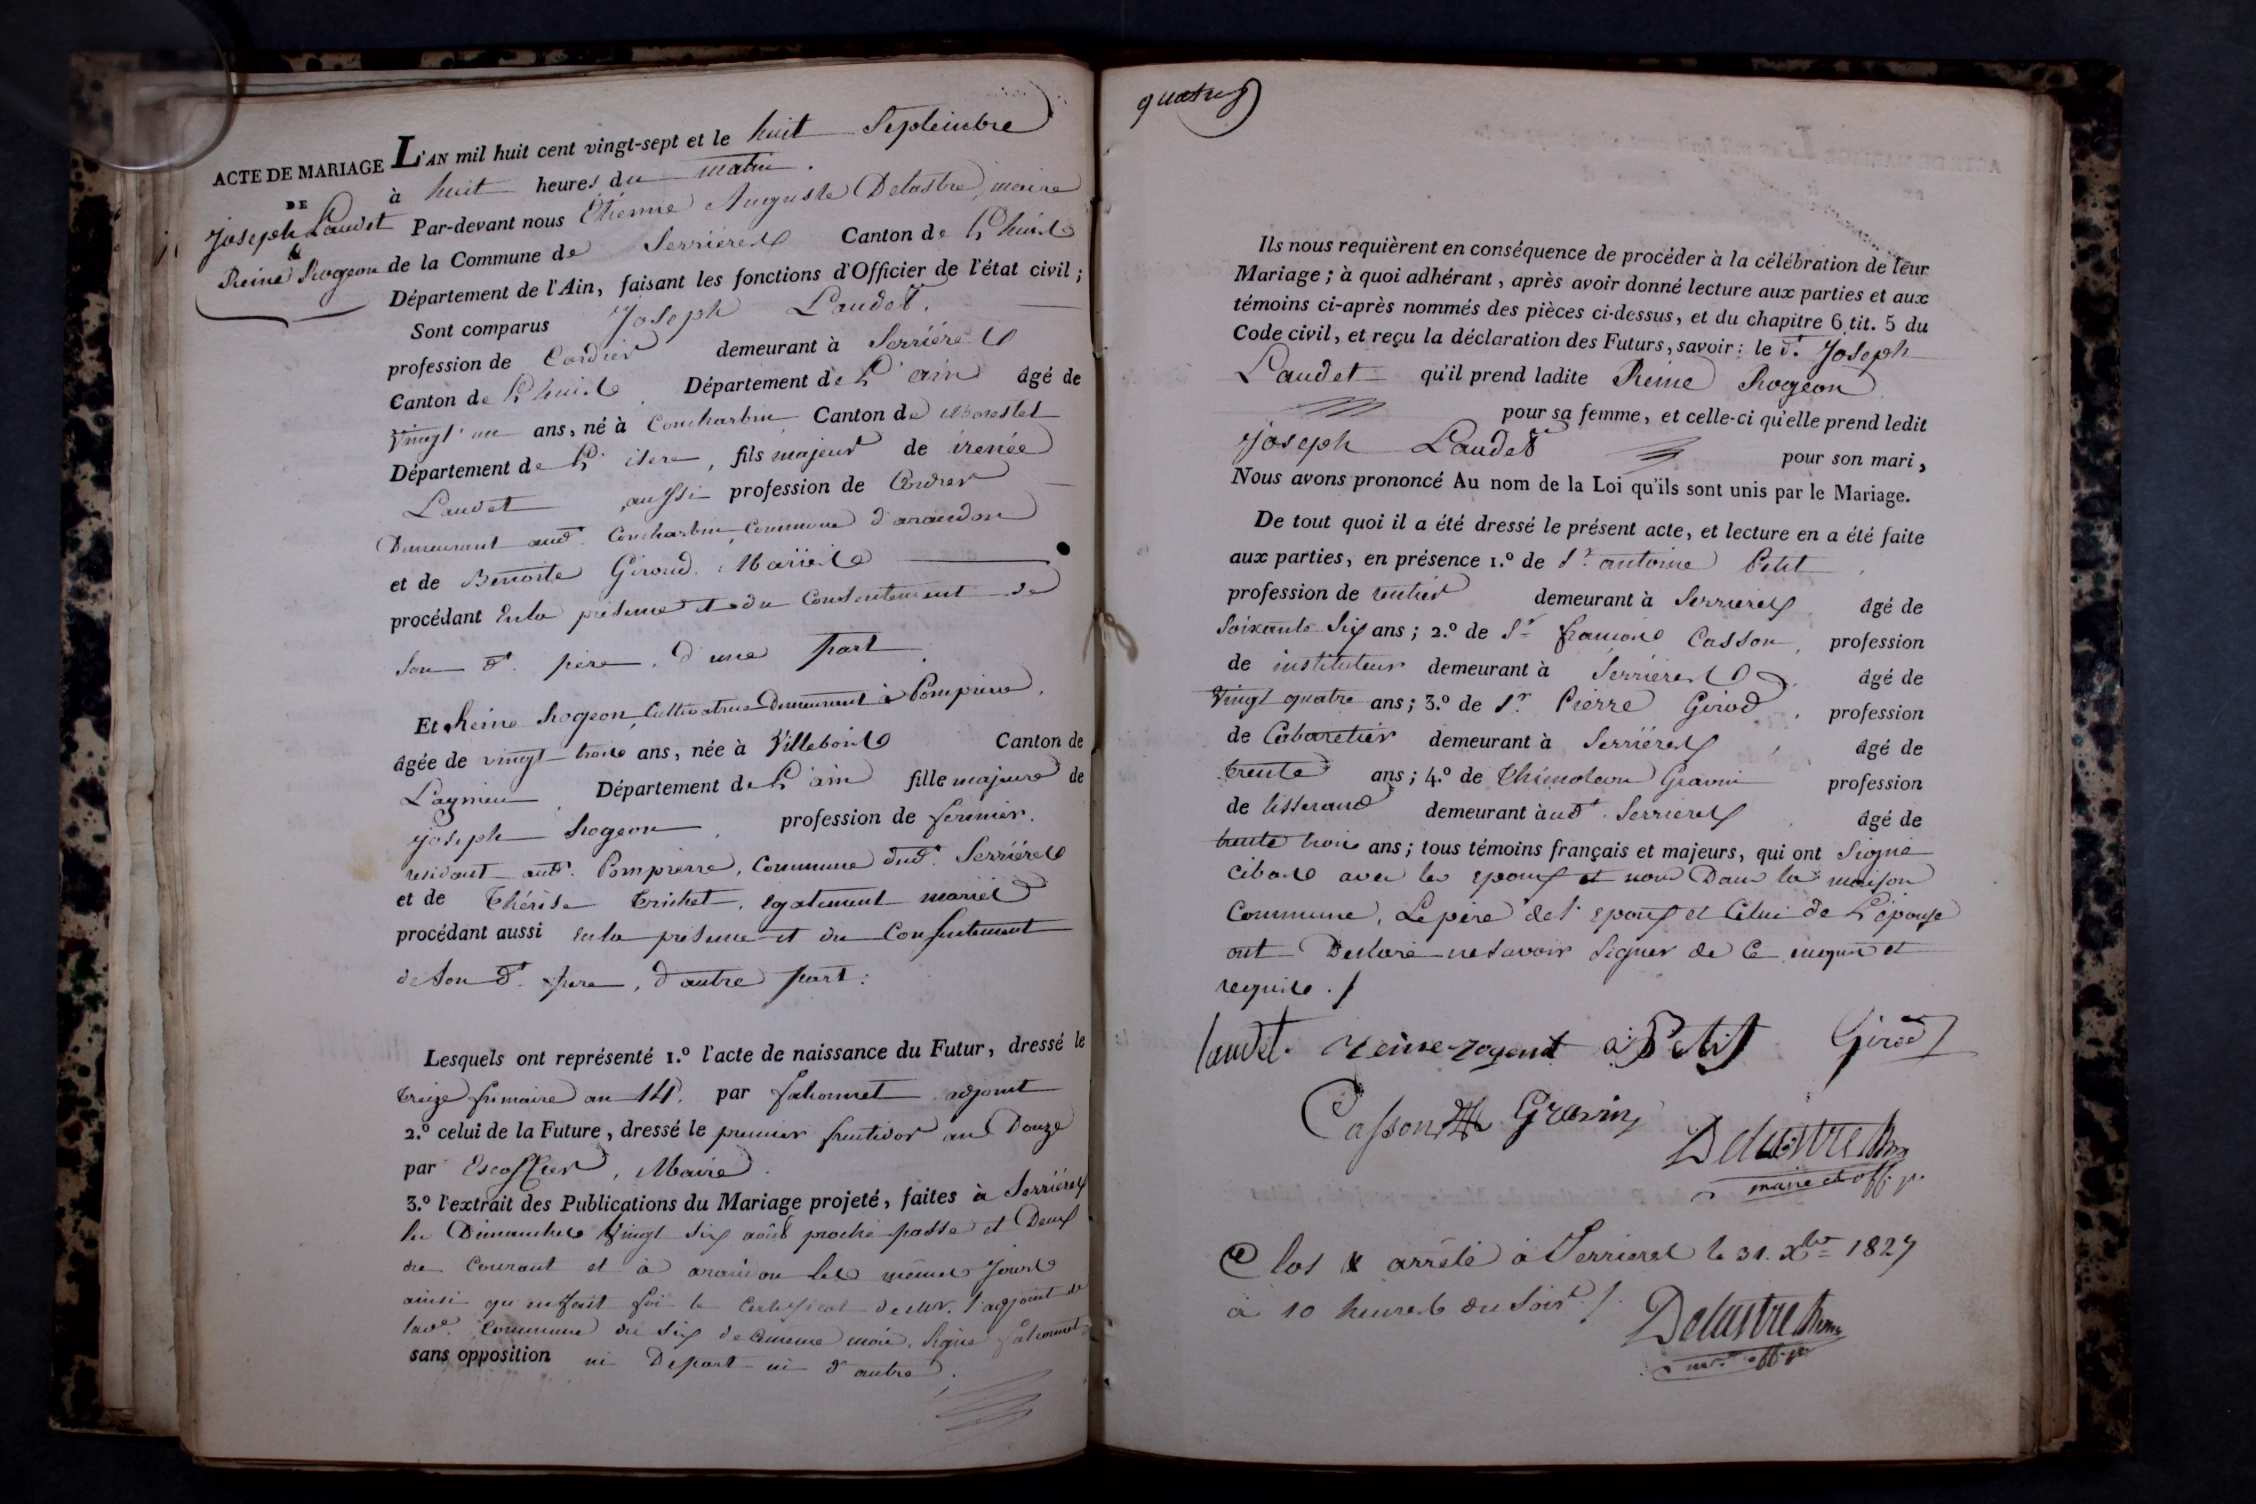 L'AN mil huit cent vingt-sept et le huit Septembre
ACTE DE MARIAGE
à huit heures du matin.
DE
Joseph Laudet
&
Reine Rogeon
Par-devant nous Étienne Auguste Delastre, maire
de la Commune de Serrieres Canton de Lhuis
Département de l'Ain, faisant les fonctions d'Officier de l'état civil;
Sont comparus Joseph Laudet.
profession de Cordier demeurant à Serriéres
Canton de Lhuis, Département de L'ain âgé de
vingt un ans, né à Concharbin Canton de Morestel
Département de L'isere, fils majeur de irenée
Laudet aussi profession de Cordier
Demeurant aud. Concharbin, Commune d'arandon
et de Benoite Giroud. Mariés
procédant En la présence et du Consentement de
son dt. père, d'une part
Et Reine Rogeon, Cultivatrice Demeurant à Pompierre,
âgée de vingt trois ans, née à Villebois Canton de
Lagnieu, Département de L'ain fille majeure de
joseph Rogeon, profession de fermier.
residant audt. Pompierre, Commune dudt. Serriéres
et de Thérèse Trichet, également mariés
procédant aussi en la présence et du Consentement
de son dt. père, d'autre part:
Lesquels ont représenté 1.º l'acte de naissance du Futur, dressé le
treize frimaire an 14. par adjoint
2.º celui de la Future, dressé le premier fructidor an Douze
par Escoffier, Maire.
3.º l'extrait des Publications du Mariage projeté, faites à Serriéres
les Dimanches Vingt six août proche passé et Deux
du Courant et à arandon les mêmes Jours
ainsi qu'en fait foi le Certificat de mr. l'adjoint de
lade. Commune du six de Ce même mois. Signé
sans opposition ni De part ni d'autre.
quatre
Ils nous requièrent en conséquence de procéder à la célébration de leur
Mariage; à quoi adhérant, après avoir donné lecture aux parties et aux
témoins ci-après nommés des pièces ci-dessus, et du chapitre 6, tit. 5 du
Code civil, et reçu la déclaration des Futurs, savoir: le dt. Joseph
Laudet qu'il prend ladite Reine Rogeon
pour sa femme, et celle-ci qu'elle prend ledit
Joseph Laudet pour son mari,
Nous avons prononcé Au nom de la Loi qu'ils sont unis par le Mariage.
De tout quoi il a été dressé le présent acte, et lecture en a été faite
aux parties, en présence 1.º de Sr. antoine Petit,
profession de rentier demeurant à Serrieres âgé de
Soixante Six ans; 2.º de Sr. françois Casson, profession
de instituteur demeurant à Serrieres. âgé de
Vingt quatre ans; 3.º de Sr. Pierre Girod, profession
de Cabaretier demeurant à Serriéres, âgé de
trente ans; 4.º de Thimoleon Gravin profession
de tisserand demeurant à udt. Serrieres, âgé de
trente trois ans; tous témoins français et majeurs, qui ont Signé
cibas avec les epoux et nous Dans la maison
Commune, Le père de l'epoux et Celui de L'épouse
ont Déclaré ne savoir Signer de Ce enquis et
requis./
laudet. reine rogeont a Petit Girod
Casson Th Gravin
Delastre
maire et off. p.
Clos & arrêté à Serrieres le 31. Xbre 1827
à 10 heures du Soir./.
Delastre